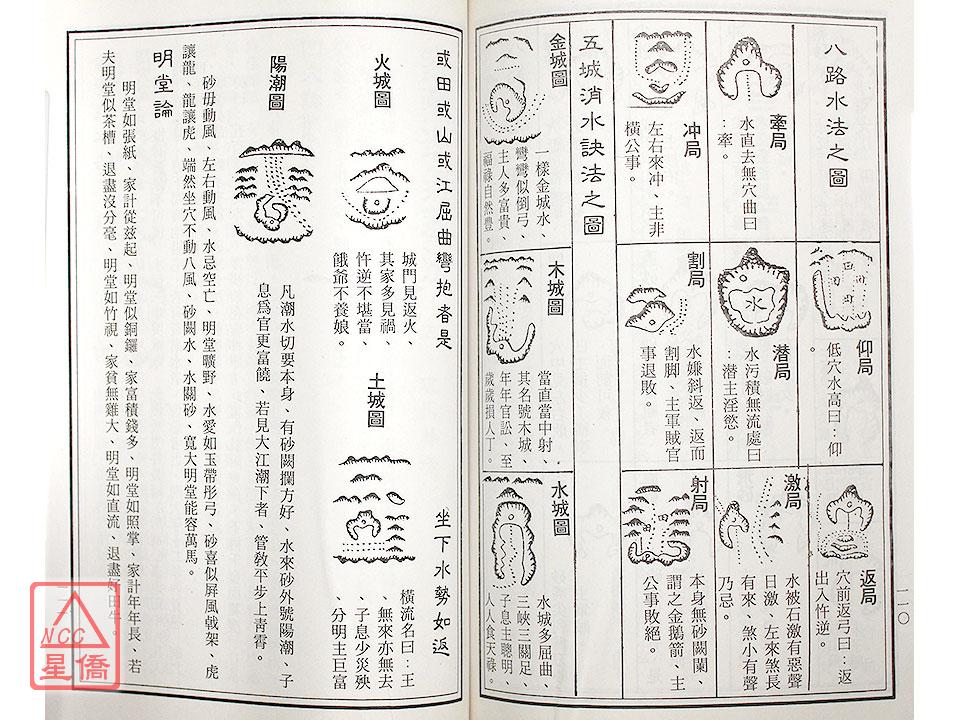 一一〇
八路水法之圖
牽局
水直去無穴曲曰
：牽。
冲局
左右來冲、主非
橫公事。
仰局
低穴水高曰：仰
。
潜局
水污積無流處曰
：潜主淫慾。
割局
水嫌斜返、返而
割脚、主軍賊官
事退敗。
返局
穴前返弓曰：返
出入忤逆。
激局
水被石激有惡聲
日激、左來煞長
有來、煞小有聲
乃忌。
射局
本身無砂關闌、
謂之金鵝箭、主
公事敗絕。
五城消水訣法之圖
金城圖
一樣金城水、
彎彎似倒弓、
主人多富貴、
福祿自然豊。
木城圖
當直當中射、
其名號木城、
年年官訟、至
歲歲損人丁。
水城圖
水城多屈曲、
三峽三關足、
子息主聰明、
人人食天祿。
或田或山或江屈曲彎抱者是
坐下水勢如返
火城圖
城門見返火、
其家多見禍、
忤逆不堪當、
餓爺不養娘。
土城圖
橫流名曰：王
、無來亦無去
、子息少災殃
、分明主巨富
陽潮圖
凡潮水切要本身、有砂闕攔方好、水來砂外號陽潮、子
息爲官更富饒、若見大江潮下者、管敎平步上青霄。
砂毋動風、左右動風、水忌空亡、明堂曠野、水愛如玉帶彤弓、砂喜似屏風戟架、虎
讓龍、龍讓虎、端然坐穴不動八風、砂闕水、水關砂、寬大明堂能容萬馬。
明堂論
明堂如張紙、家計從兹起、明堂似銅鑼、家富積錢多、明堂如照掌、家計年年長、若
夫明堂似茶槽、退盡沒分毫、明堂如竹視、家貧無雞犬、明堂如直流、退盡好田牛。
NCC
星僑